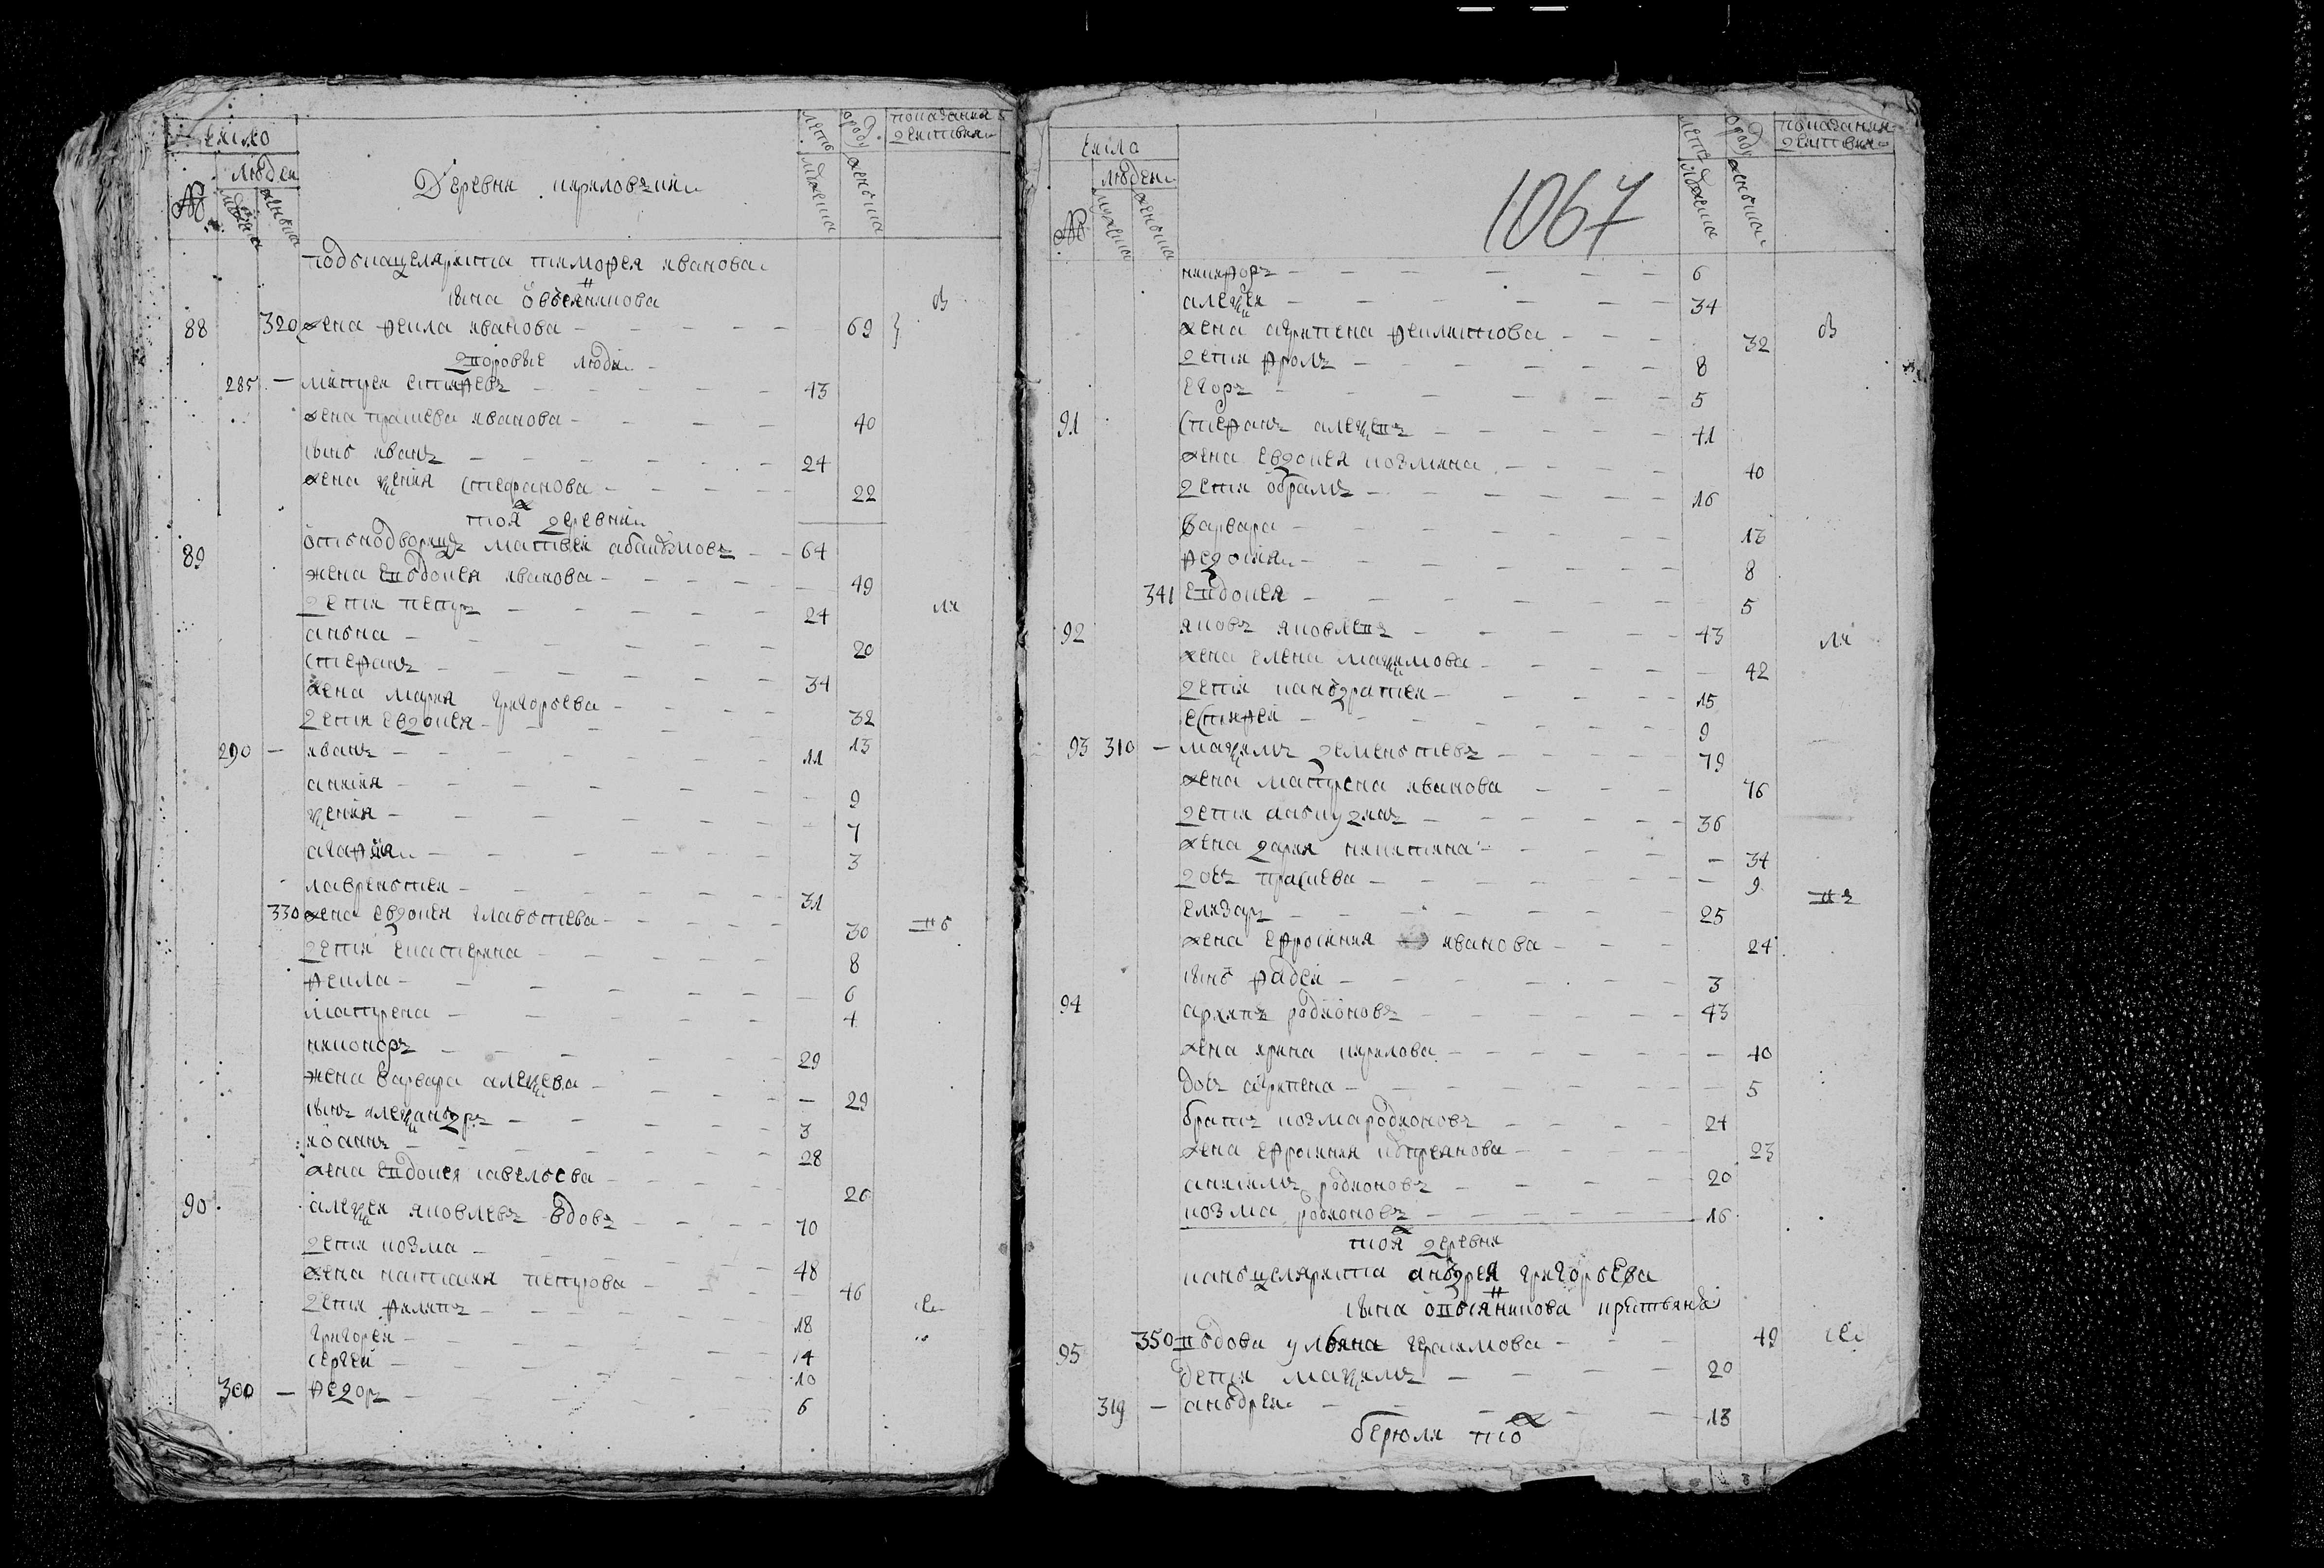 число
людей
№
мужеска
женска
Деревня кириловчина
лета
мужеска
от роду
женска
показания
действия
подканцеляриста тимофея иванова
сына овсяникова
ов
88 320 жена фекла иванова 69
дворовые люди
285 митрей естифеевъ 43
жена прасковя иванова 40
сынъ иванъ 24
жена ксения стефанова 22
тоя ж деревни
89 отнодворцъ матвей абакумовъ 64
жена евдокея иванова 49
дети петръ 24
ли
анна 20
стефанъ 34
жена мария григорьева 32
дети евдокея 13
290 иванъ 11
анисия 9
ксения 7
агафия 3
лаврентей 31
330 жена евдокея главтиева 30
дети екатерина 8
фекла 6
матрена 4
никоноръ 29
жена варвара алексеева 29
сынъ александръ 3
иоаннъ 28
жена евдокея савельева 26
90 алексей яковлевъ вдовъ 70
дети козма 48
жена наталия петрова 46
дети филипъ 18
григорей 14
сергей 10
300 федоръ 6
число
людей
№
мужеска
женска
1067
лета
мужеска
от роду
женска
показания
действия
никифоръ 6
алексей 34
жена агрипена феклистова 32
ов
дети фролъ 8
егоръ 5
91 стефанъ алексеевъ 41
жена евдокея козмина 40
дети абрамъ 16
варвара 13
федосия 8
341 евдокея 5
92 яковъ яковлевъ 43
ли
жена елена максимова 42
дети панкратей 15
естифей 9
93 310 максимъ дементиевъ 79
жена матрена иванова 76
дети 36
жена дария никитина 34
дочь прасковя 9
елизаръ 25
жена ефросиния иванова 24
сынъ фадей 3
94 архипъ родионовъ 43
жена ирина кирилова 40
дочь агрипена 5
братъ козма родионовъ 24
жена ефросиния киприянова 23
анисимъ родионовъ 20
козма родионовъ 16
тоя ж деревни
канцеляриста андрея григорьева
сына овсяникова крестьяна
95 350 вдова ульяна герасимова 49
дети максимъ 20
319 андрей 13